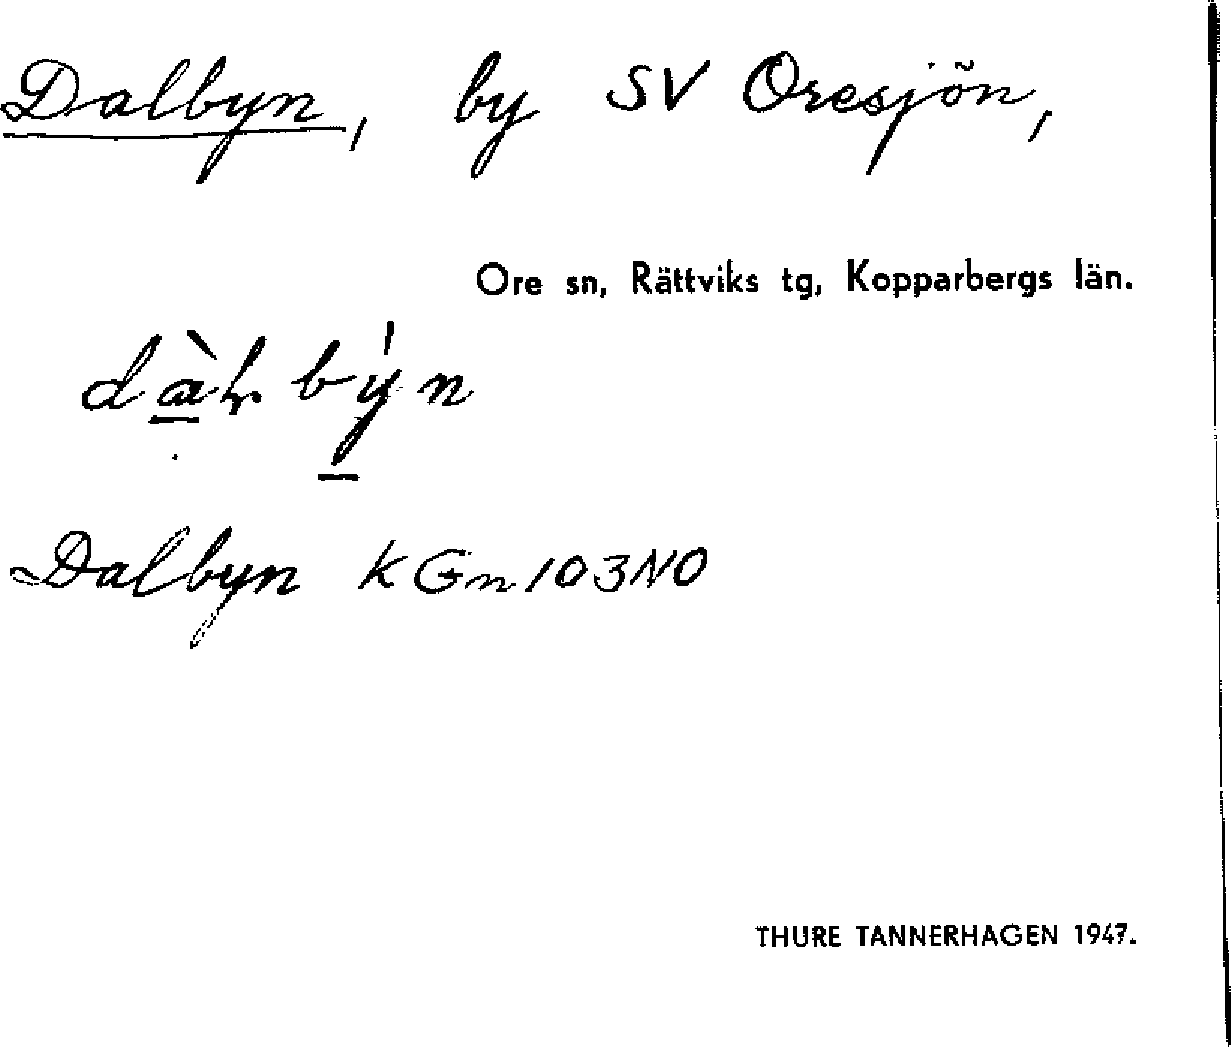 Dalbyn, by SV Oresjön,
Ore sn, Rättviks tg, Kopparbergs län.
Dalbyn KGn 103NO
THURE TANNERHAGEN 1947.